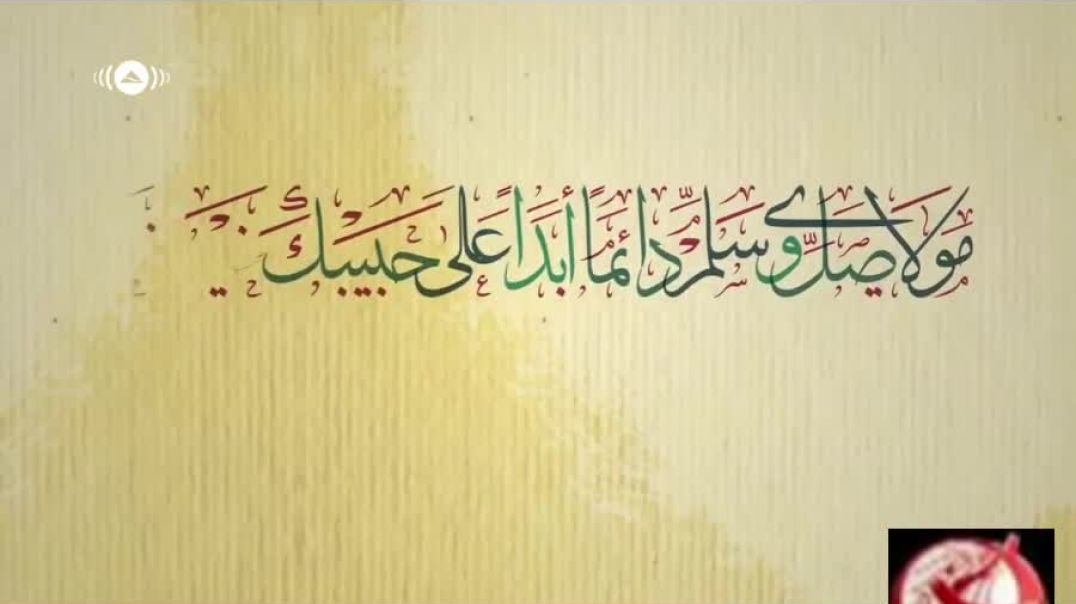 مَولَاي صَلِّ وَسَلِّم دَائماً أبَداً عَلى حَبِيبِكَ